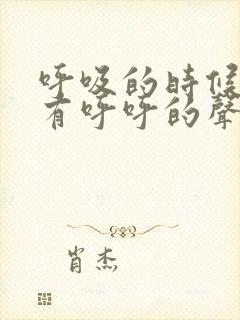 呼吸的時候
有呼呼的聲
肖杰